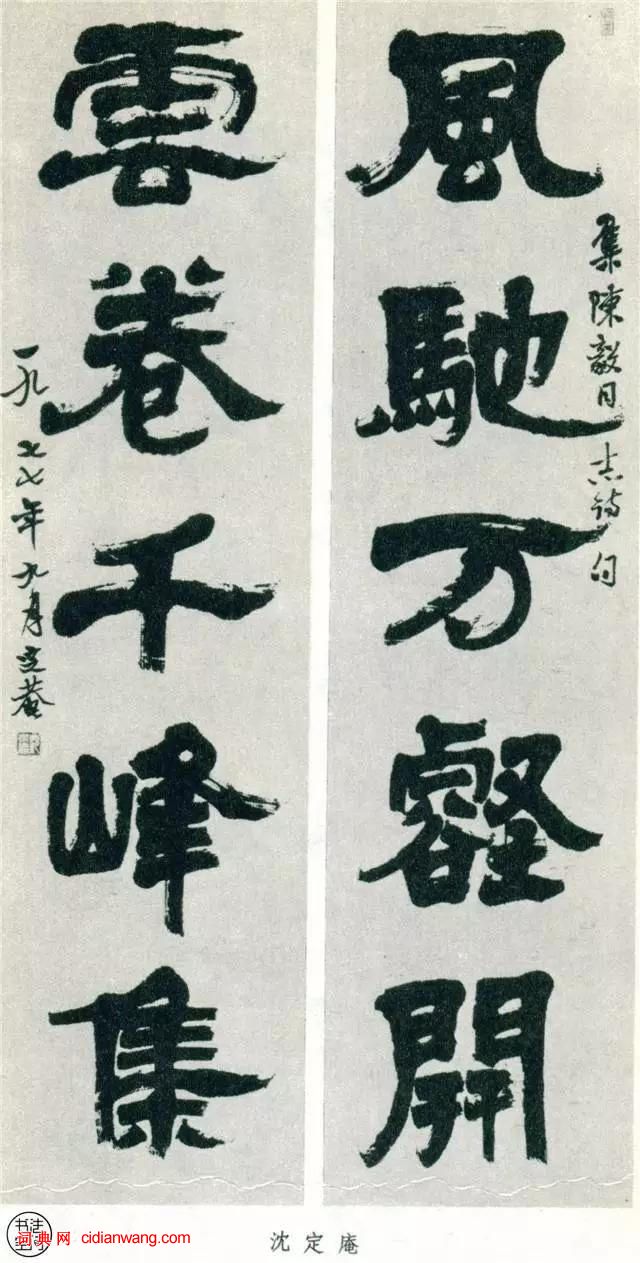 風馳万壑開
集陳毅同志詩句
雲卷千峰集
一九七七年九月定菴
沈定庵
词典网 cidianwang.com